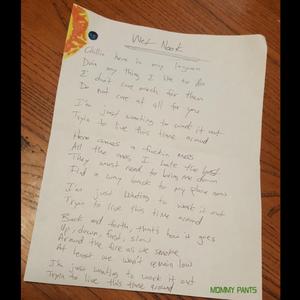 Wet Nook
Chillin here in my lagoon
Doin my thing I like to do
I don't care much for them
Do not care at all for you
I'm just wanting to work it out
Tryin to live this time around
Here comes a fuckin mess
All the ones I hate the best
They must need to bring me down
Find a way back to my place now
I'm just wanting to work it out
Tryin to live this time around
Back and forth, that's how it goes
Up, down, fast, slow
Around the fire as we smoke
At least we won't remain low
I'm just wanting to work it out
Tryin to live this time around
MOMMY PANTS